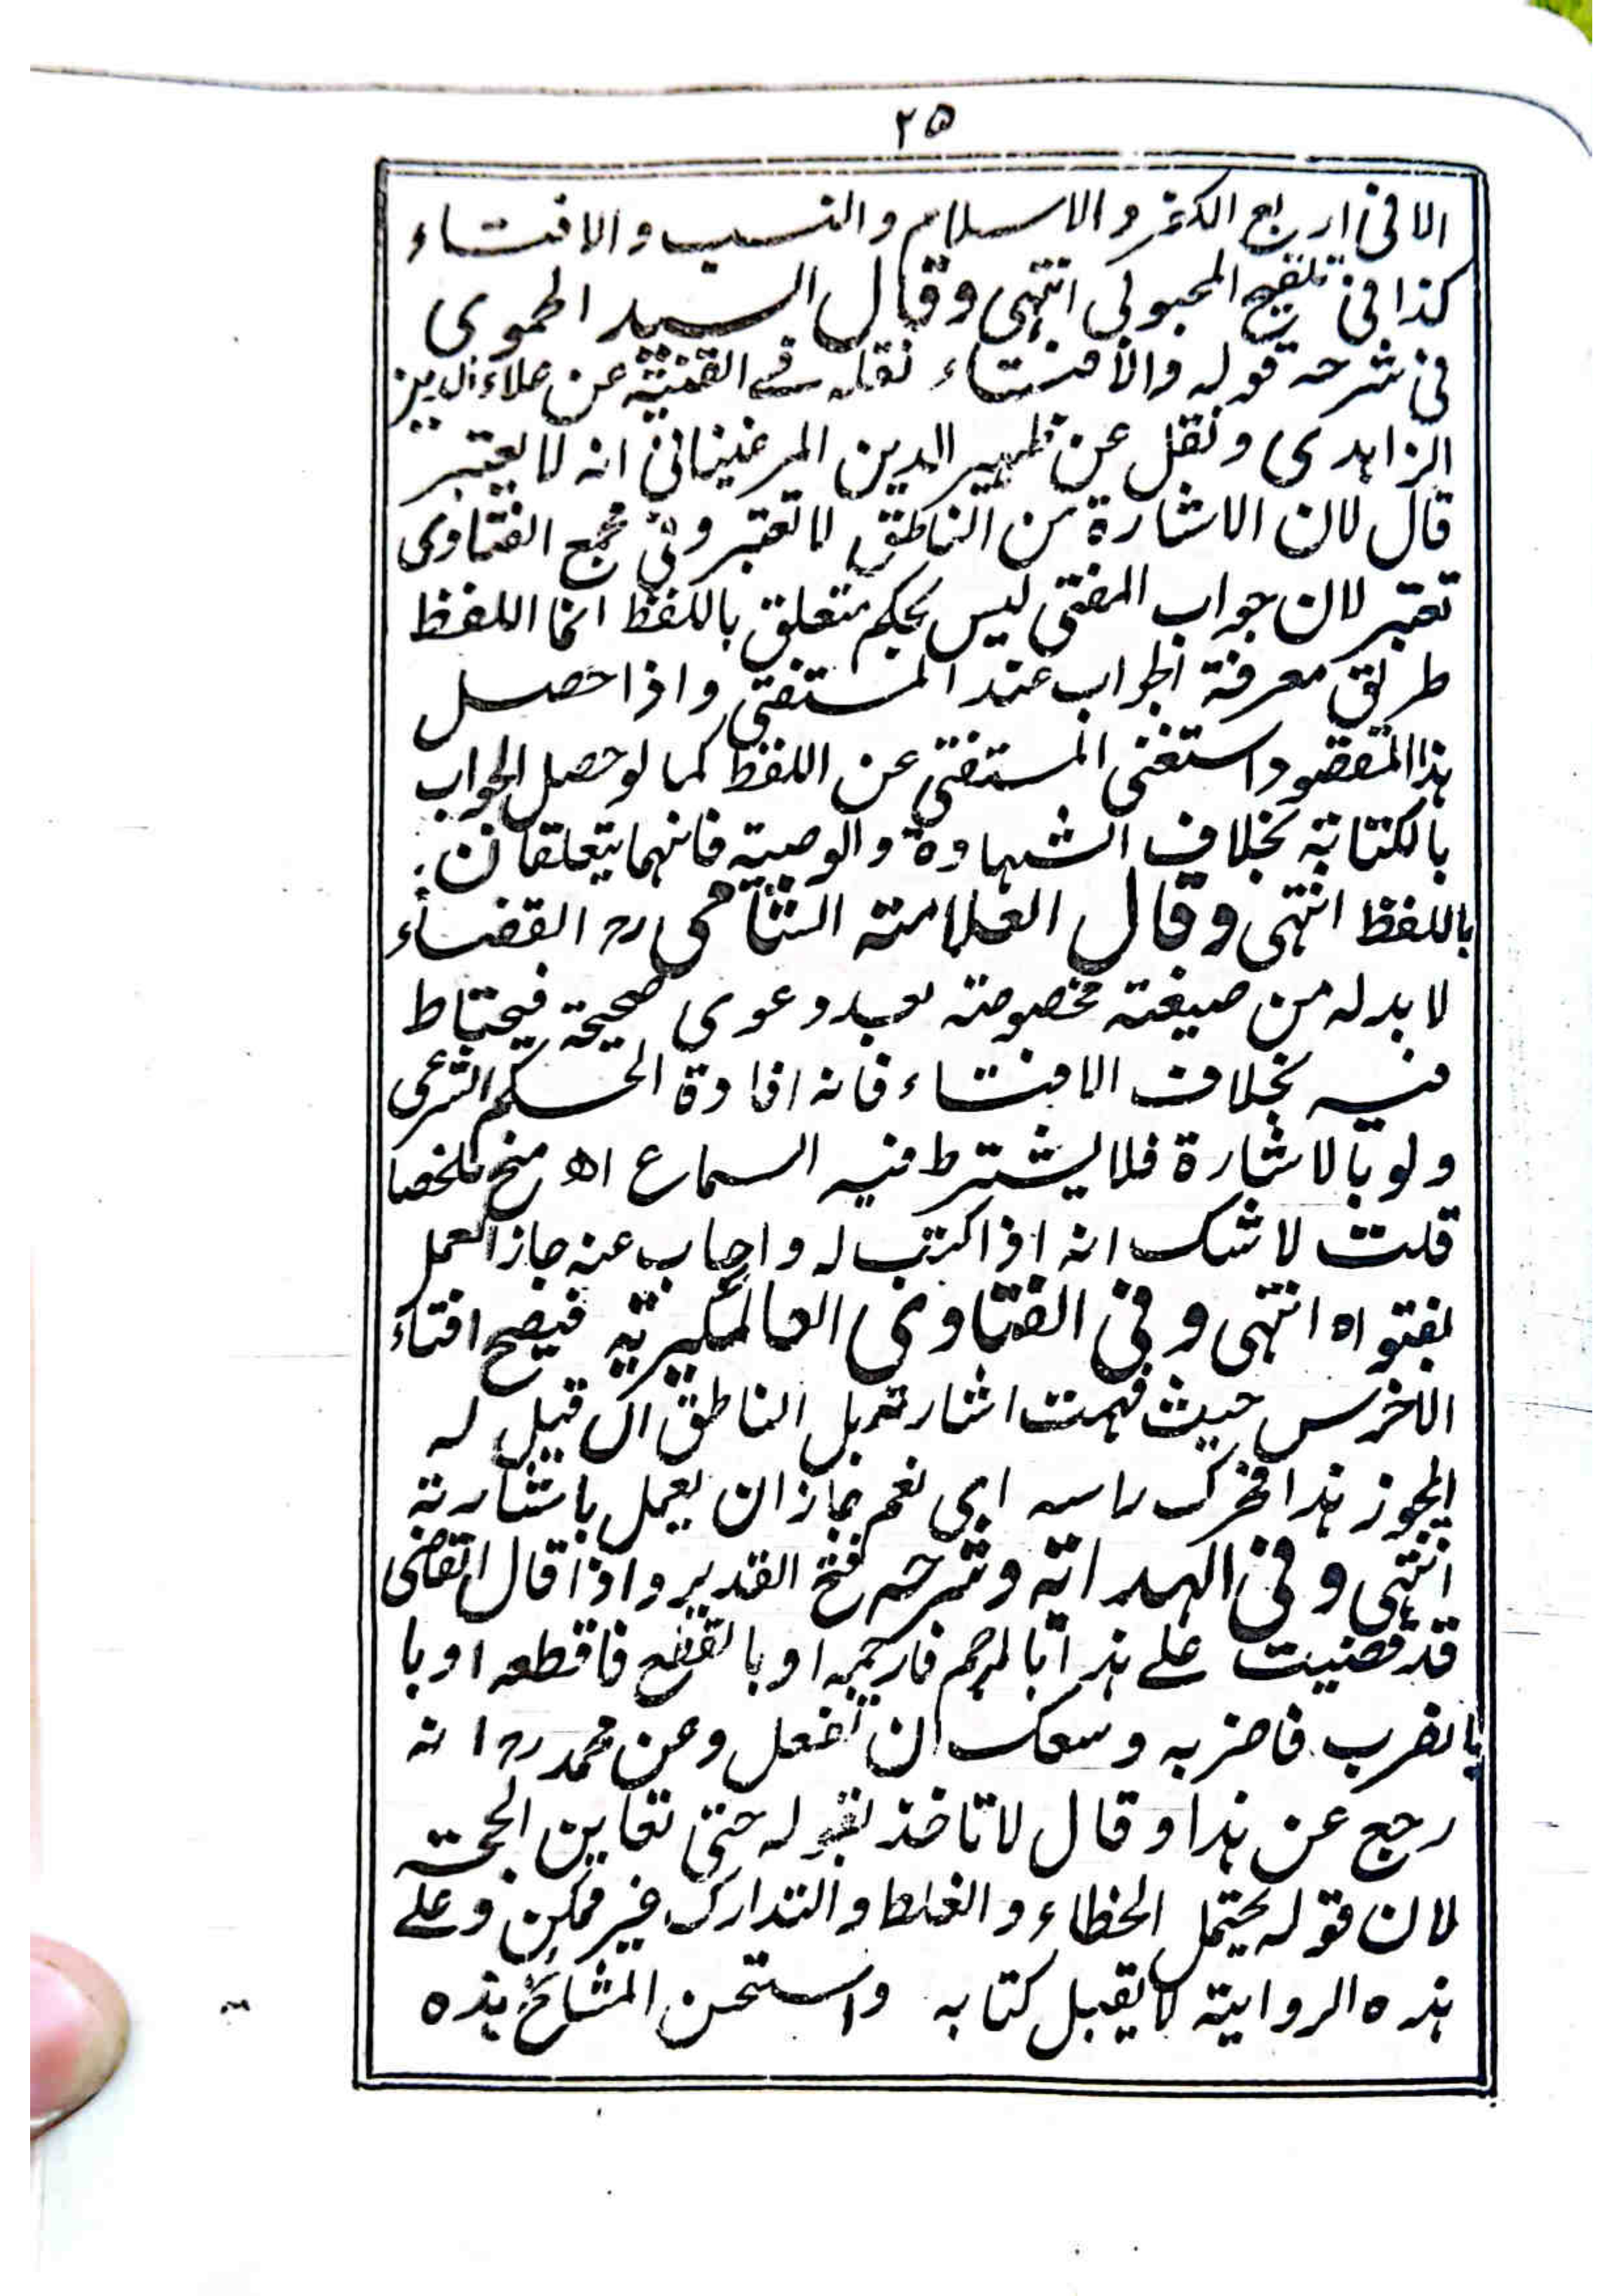 ٢٥
الا فى اربع الكفر والاسلام والنسب والافتاء
كذا فى تلقيح المحبوبى انتهى وقال السيد الحموى
فى شرحه قوله والافتاء نقله فے القنية عن علاء الدين
الزاهدى ونقل عن ظهير الدين المرغينانى انه لا يعتبر
قال لان الاشارة من الناطق لا تعتبر وفى مجمع الفتاوى
تعتبر لان جواب المفتى ليس بحكم متعلق باللفظ انما اللفظ
طريق معرفة الجواب عند المستفتى واذا حصل
هذا المقصود استغنى المستفتى عن اللفظ كما لو حصل الجواب
بالكتابة بخلاف الشهادة والوصية فانهما يتعلقان
باللفظ انتهى وقال العلامة الشامى رح القضاء
لا بد له من صيغة مخصوصة بعد دعوى صحيحة فيحتاط
فيه بخلاف الافتاء فانه افادة الحكم الشرعى
ولو بالاشارة فلا يشترط فيه السماع اه منح ملخصا
قلت لا شك انه اذا كتب له واجاب عنه جاز العمل
بفتواه انتهى وفى الفتاوى العالمگيرية فيصح افتاء
الاخرس حيث فهمت اشارته بل الناطق ان قيل له
ايجوز هذا فحرك راسه اى نعم جاز ان يعمل باشارته
انتهى وفى الهداية وشرحه فتح القدير واذا قال القاضى
قد قضيت على هذا بالرجم فارجمه او بالقطع فاقطعه او با
بالضرب فاضربه وسعك ان تفعل وعن محمد رح انه
رجع عن هذا وقال لا تاخذ بقوله حتى تعاين الحجة
لان قوله يحتمل الخطاء والغلط والتدارك غير ممكن وعلے
هذه الرواية لا يقبل كتابه واستحسن المشائخ هذه